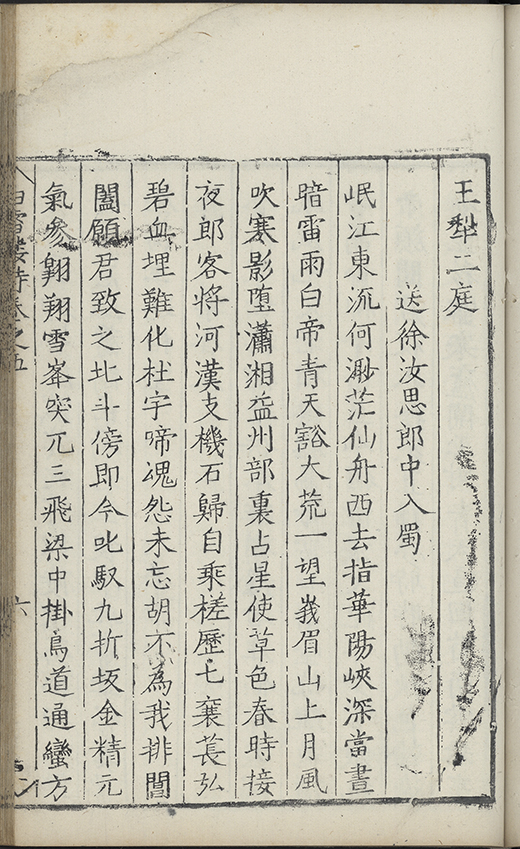 王犁二庭
送徐汝思郎中入蜀
岷江東流何渺茫仙舟西去指華陽峽深當晝
暗雷雨白帝青天豁大荒一望峩眉山上月風
吹寒影墮瀟湘益州部裏占星使草色春時接
夜郎客將河漢支機石歸自乘槎歷七襄萇弘
碧血埋難化杜宇啼魂怨未忘胡不為我排閶
闔願君致之北斗傍即今叱馭九折坂金精元
氣參翱翔雪峯突兀三飛梁中掛鳥道通蠻方
白雪樓詩卷之五
六